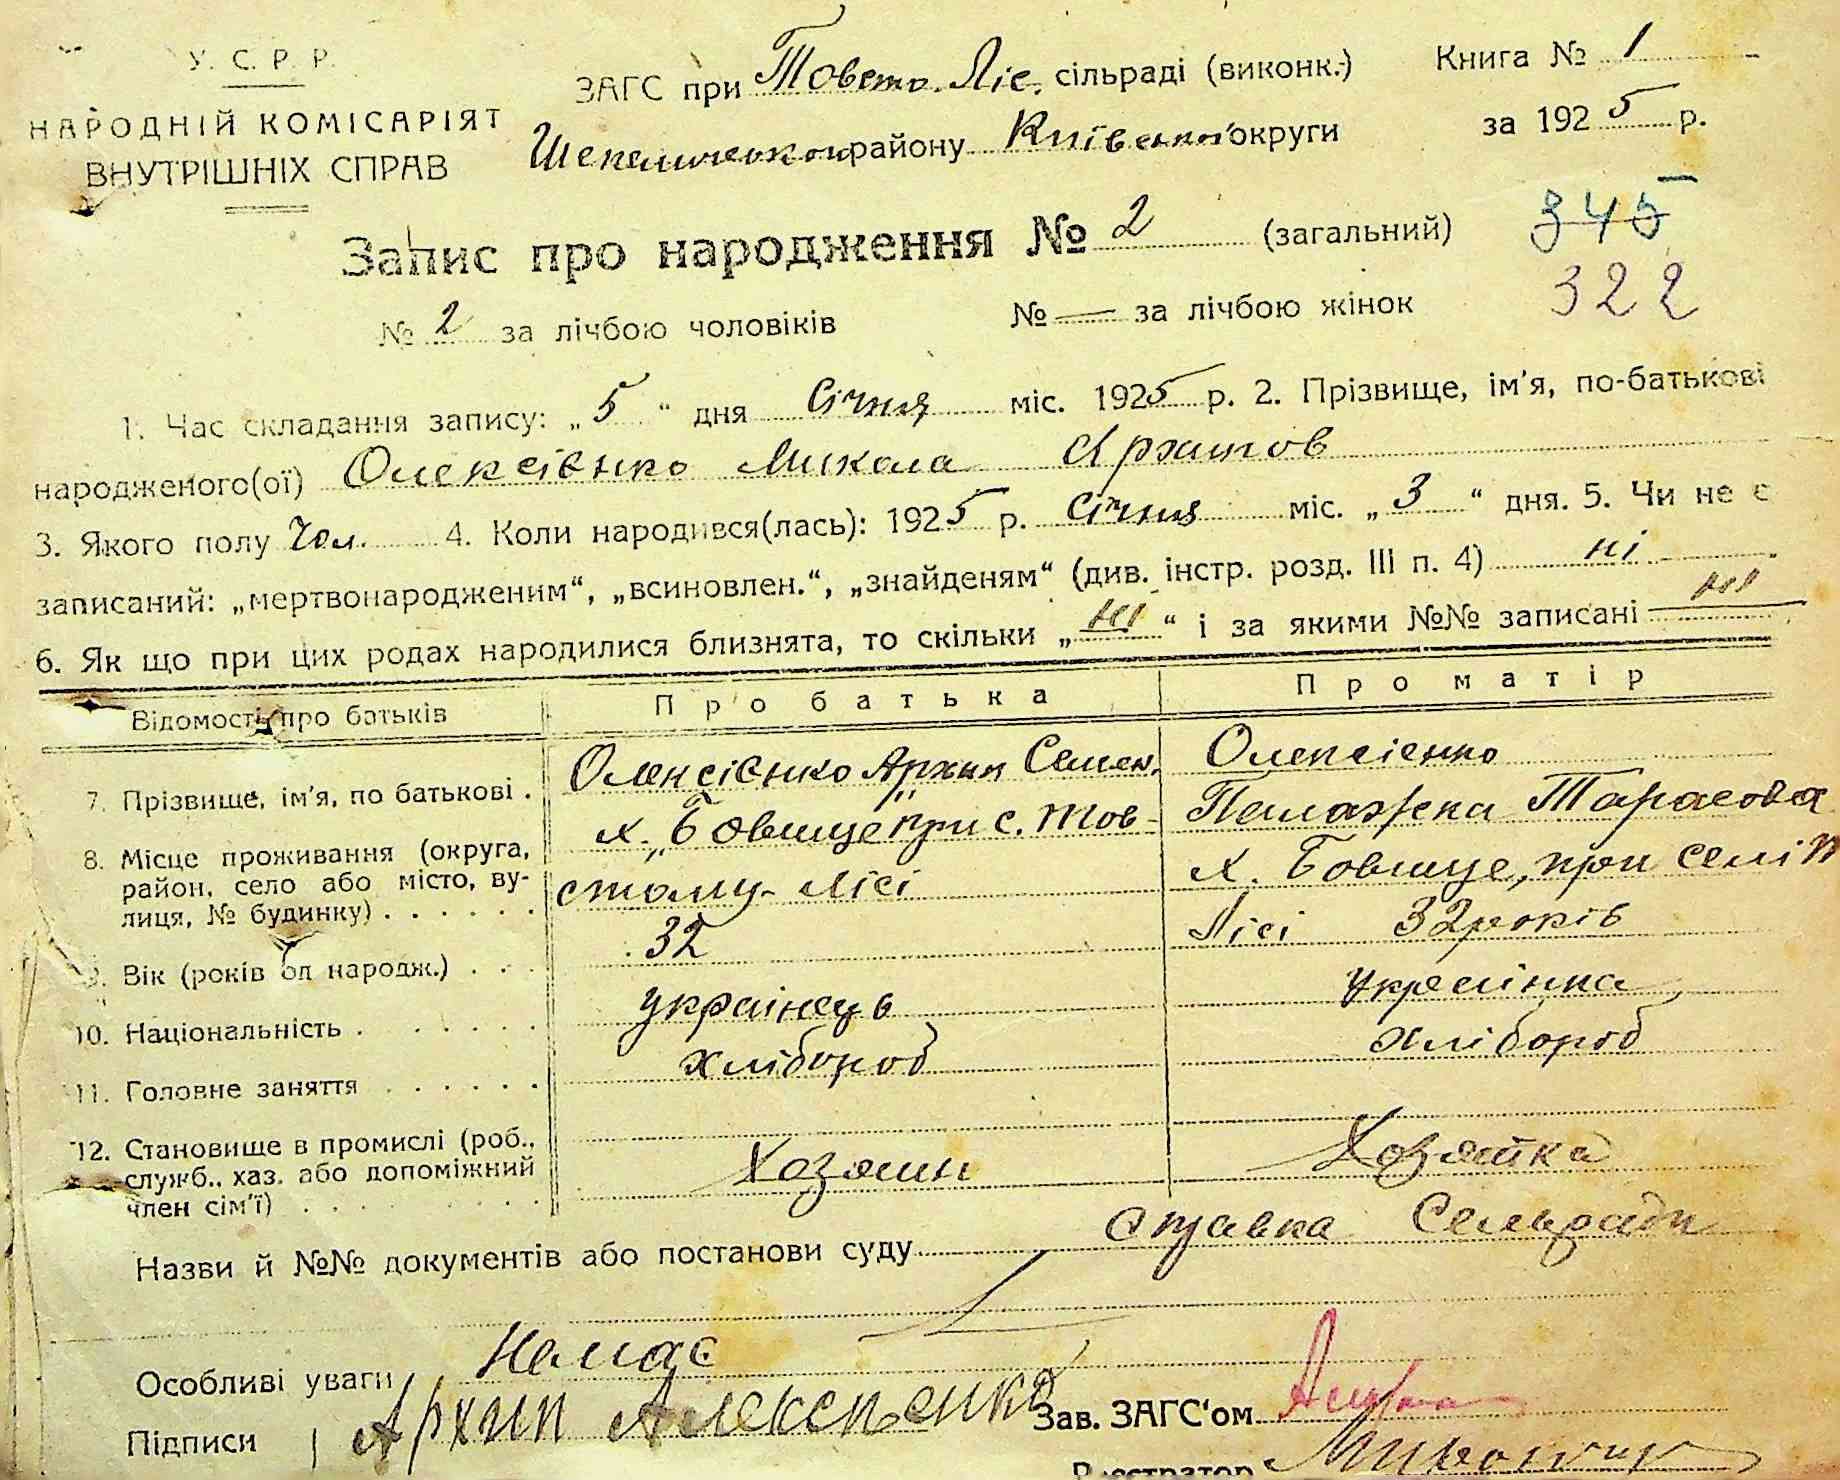 У. С. Р. Р.
НАРОДНІЙ КОМІСАРІЯТ
ВНУТРІШНІХ СПРАВ
ЗАГС при Товсто. Ліс. сільраді (виконк.)
Шепелическом району Київської округи
Книга № 1
за 1925 р.
Запис про народження № 2 (загальний)
345
322
№ 2 за лічбою чоловіків № — за лічбою жінок
1. Час складання запису: „5“ дня Січня міс. 1925 р. 2. Прізвище, ім’я, по-батькові
народженого(ої) Олексієнко Микола Архипов
3. Якого полу Чол. 4. Коли народився(лась): 1925 р. Січня міс. „3“ дня. 5. Чи не є
записаний: „мертвонародженим“, „всиновлен.“, „знайденям“ (див. інстр. розд. III п. 4) ні
6. Як що при цих родах народилися близнята, то скільки „ні“ і за якими №№ записані ні
Відомості про батьків Про батька Про матір
7. Прізвище, ім’я, по батькові . Олексієнко Архип Семен. Олексієнко
Пелажка Тарасова
8. Місце проживання (округа,
район, село або місто, ву-
лиця, № будинку) . . . . . .
х. „Бовище" при с. Тов-
стому-Лісі
х. Бовище, при селі Т
Лісі
9. Вік (років од народж.) . . . 32 32 років
10. Національність . . . . . . . українець українка
11. Головне заняття . . . . . . хлібороб хлібороб
12. Становище в промислі (роб.,
служб., хаз. або допоміжний
член сім’ї) . . . . . . . . .
Хозяин Хозяйка
Назви й №№ документів або постанови суду Справка Сельради
Особливі уваги Немає
Підписи Архип Алексеенко
Зав. ЗАГС‘ом
Реєстратор